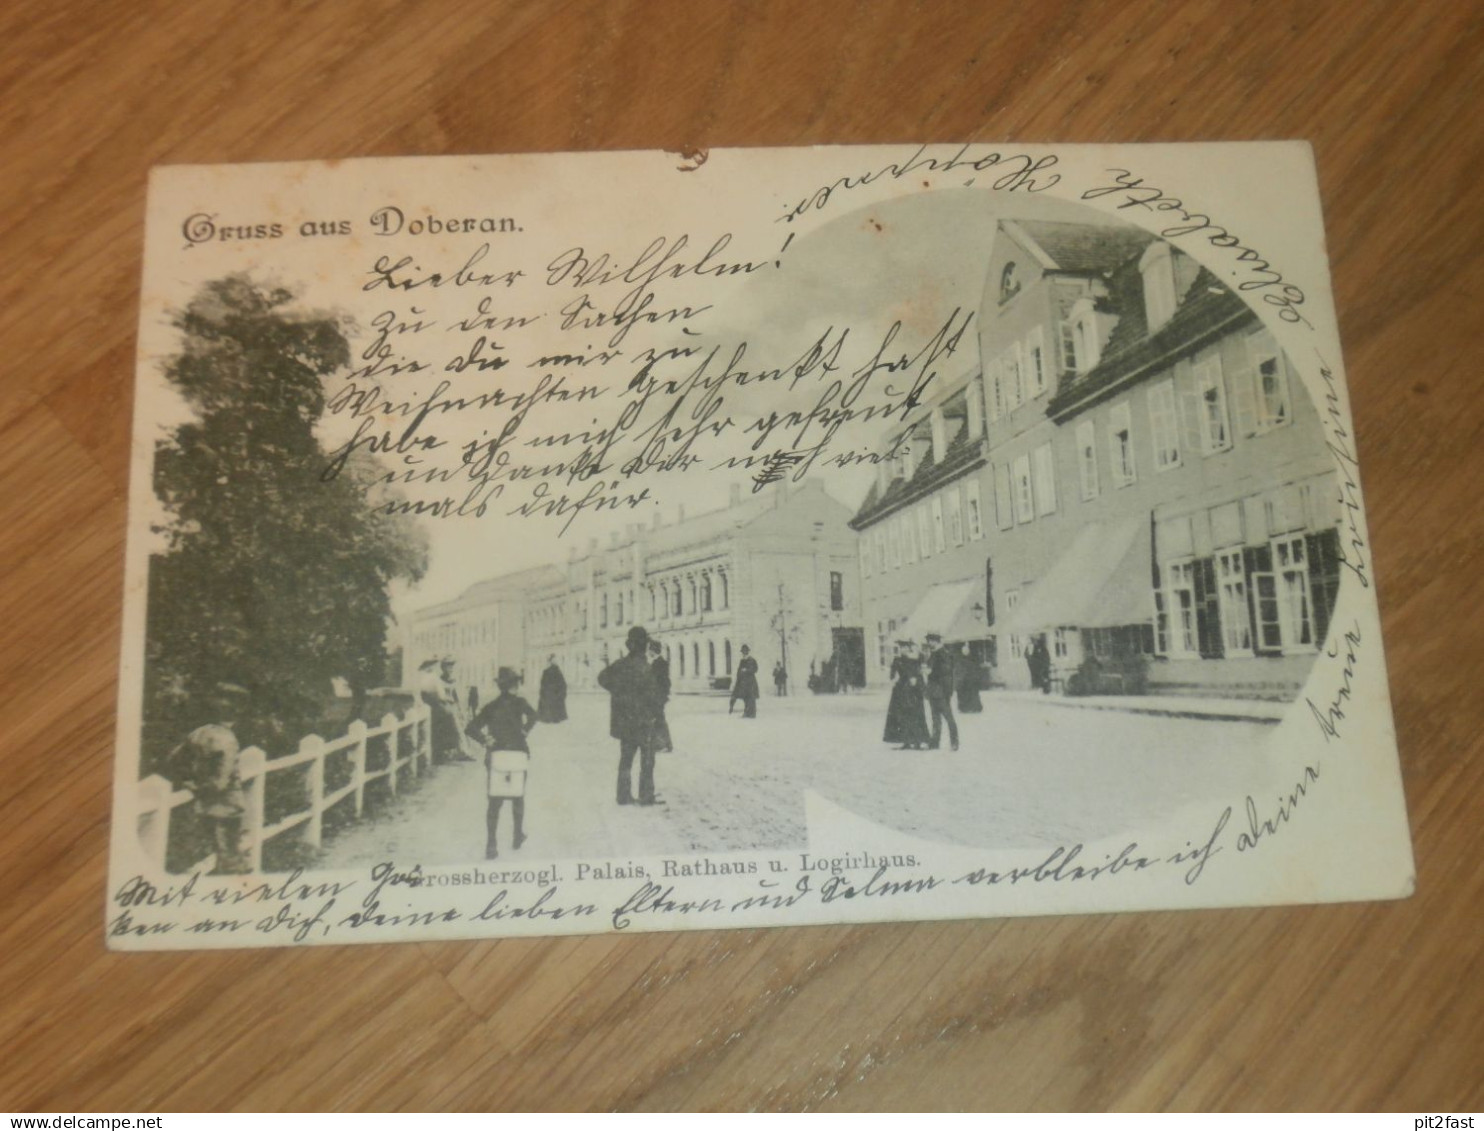 Gruss aus Doberan.
Lieber Wilhelm!
Zu den Sachen
die Du mir zu
Weihnachten geschenkt hast
habe ich mich sehr gefreut
und danke Dir noch viel
mals dafür.
Grossherzogl. Palais, Rathaus u. Logirhaus.
Mit vielen Grüs
sen an Dich, Deine lieben Eltern und Selma verbleibe ich Deine treue Cousine Elisabeth
delcampe.net
pit2fast